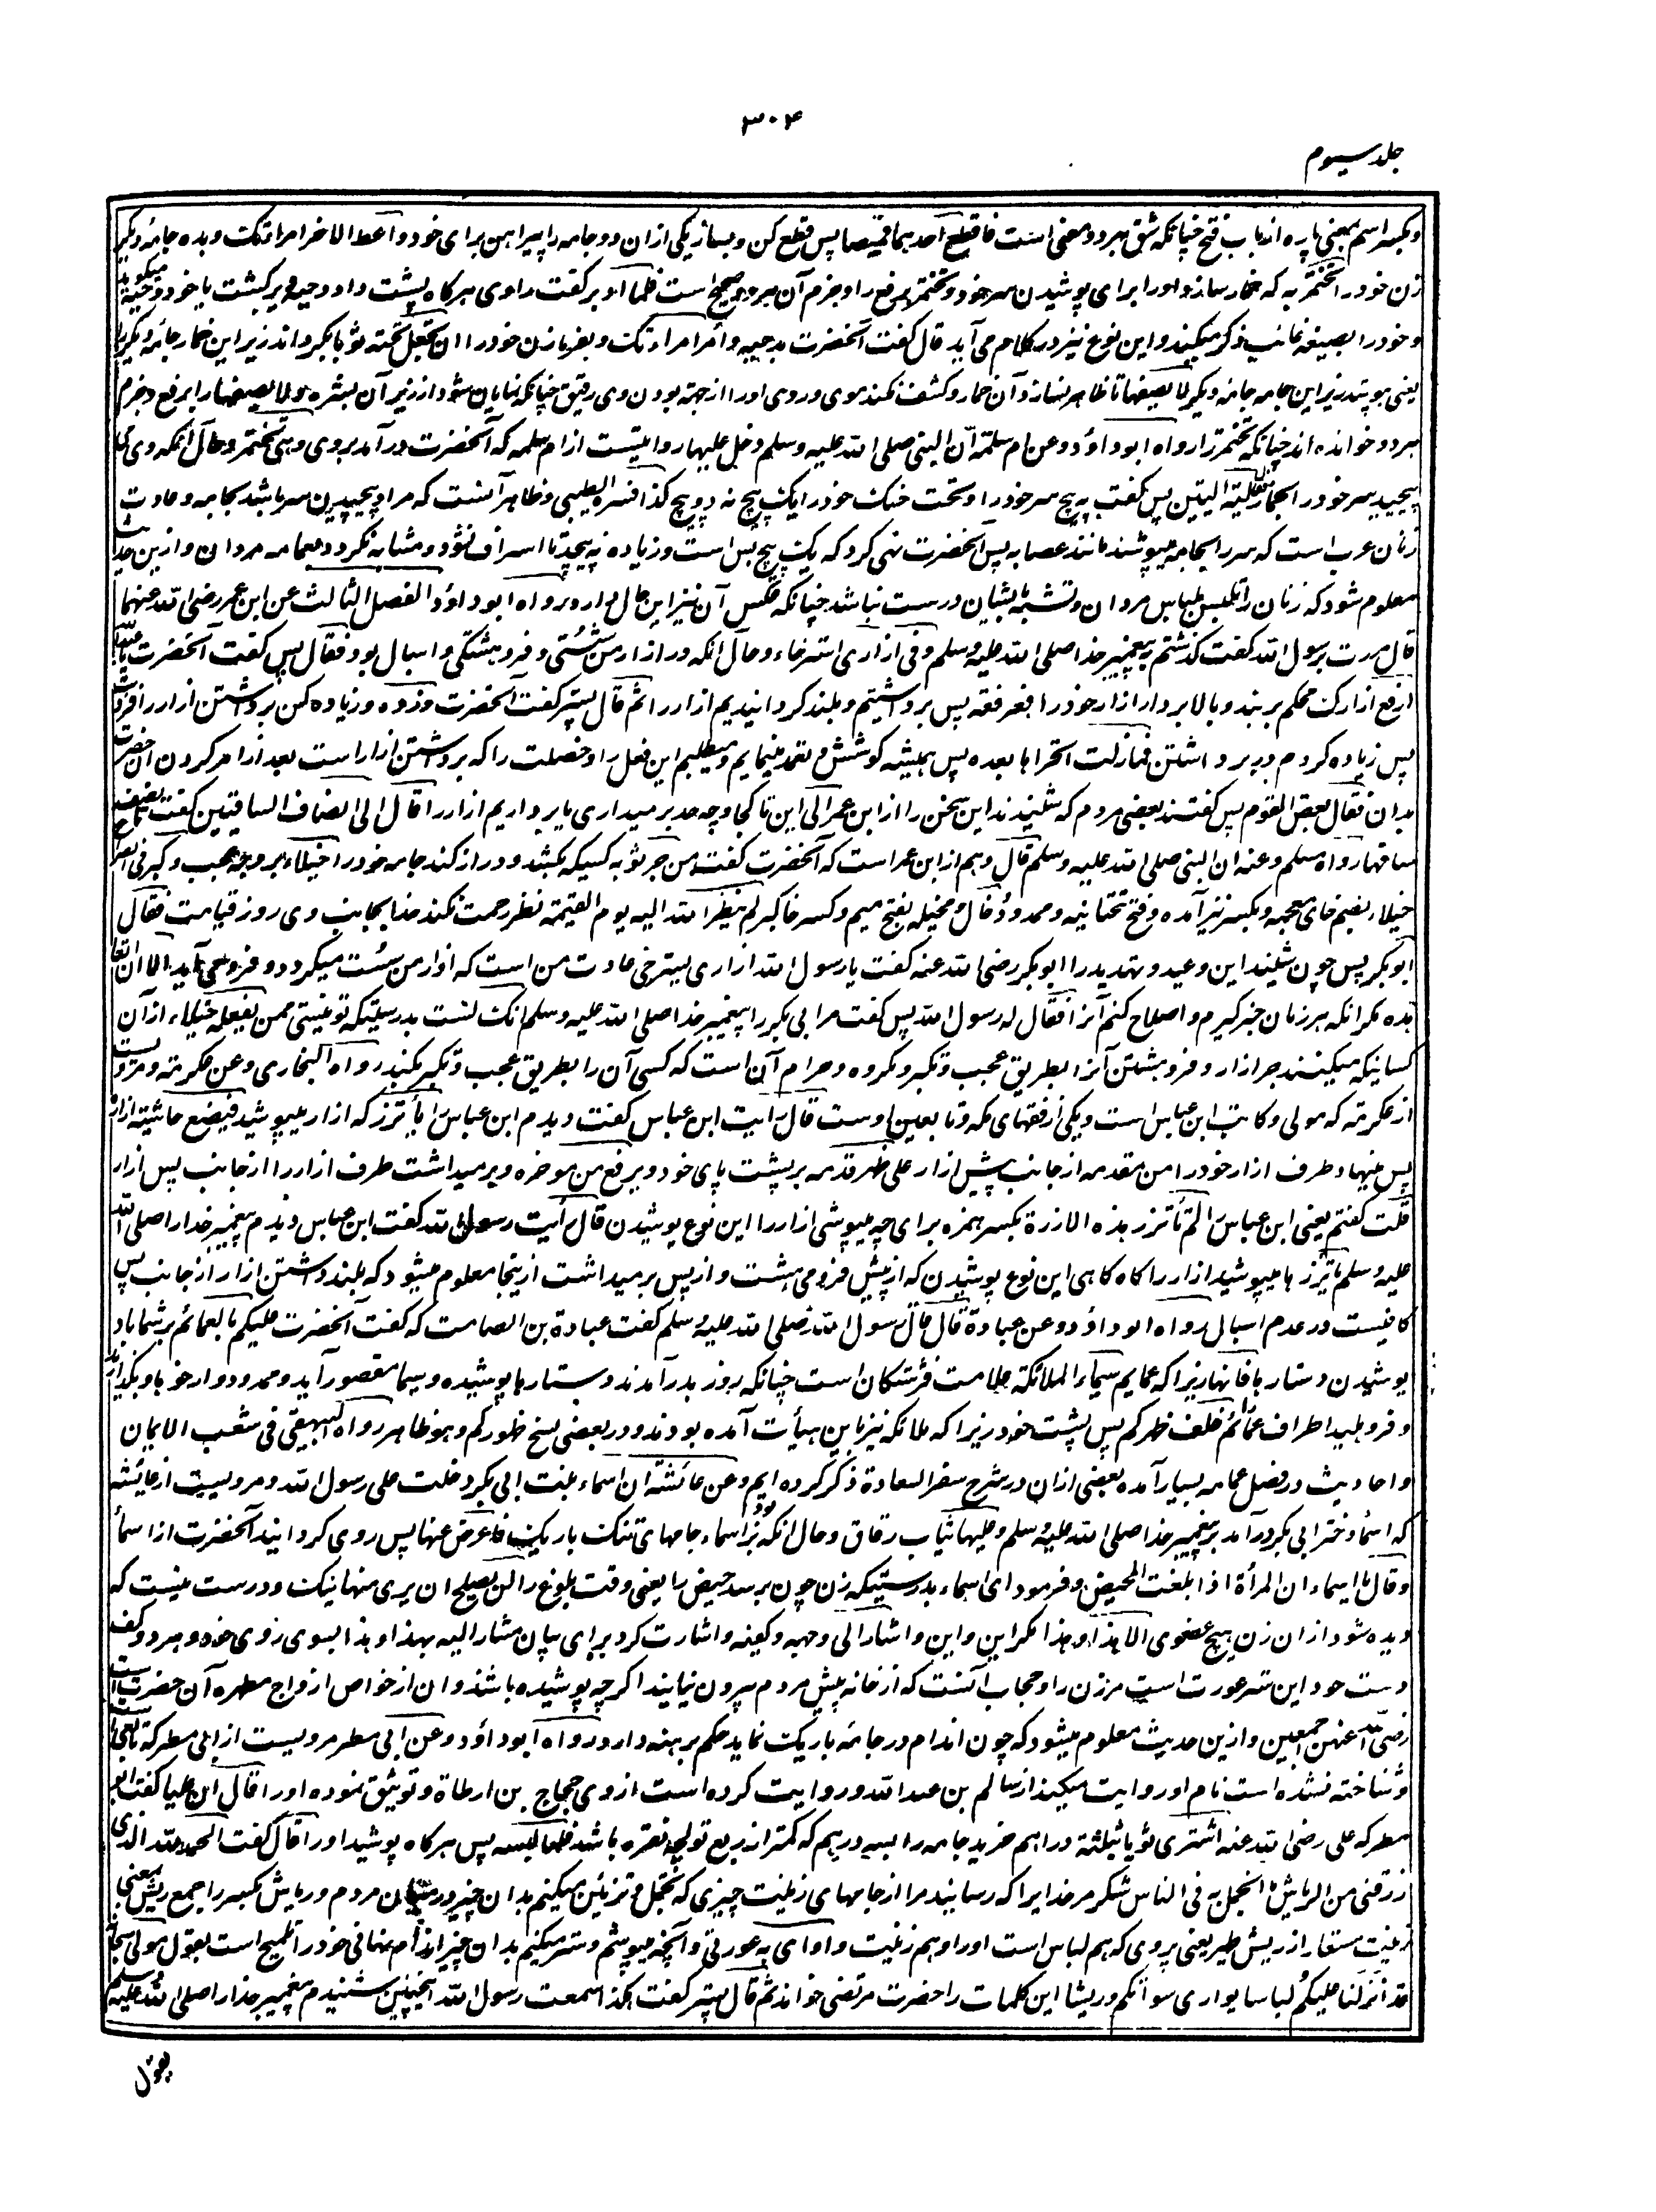 ۳۰۴
جلد سیوم
وبکسر اسم بمعنی پاره از باب فتح چنانکه شق بهر دو معنی است فاقطع احدهما قمیصا پس قطع کن و بساز یکی ازان دو جامه را پیراهن برای خود و اعط الاخر امراتک و بده جامهٔ دیگر
زن خود را تختمر به که خمار سازد او را برای پوشیدن سر خود و تختمر برفع را و جزم آن هر دو صحیح است فلما ادبر گفت راوی هرگاه پشت داد دحیه و برگشت با خود دحیه میگوید
و خود را بصیغهٔ غائب ذکر میکند و این نوع نیز در کلام می آید قال گفت آنحضرت بدحیه وأمر امراتک و بفرما زن خود را ان تجعل تحته ثوبا بگرداند زیر این خمار جامهٔ دیگر را
یعنی بپوشد زیر این جامه جامه دیگر لا یصفها تا ظاهر نسازد آن خمار و کشف نکند موی و روی او را از جهت بودن وی رقیق چنانکه نمایان شود از زیر آن بشره و لا یصفها را برفع و جزم
هر دو خوانده اند چنانکه تختمر را رواه ابوداؤد وعن ام سلمة ان النبی صلی الله علیه وسلم دخل علیها روایتست از ام سلمه که آنحضرت درآمد بروی وهی تختمر و حال آنکه وی می
پیچید سر خود را بخمار فقال لیة لا لیتین پس گفت به پیچ سر خود را و تحت حنک خود را یک پیچ نه دو پیچ کذا فسره الطیبی و ظاهر آنست که مراد پیچیدن سر باشد بجامه و عادت
زنان عرب است که سر را بجامه میپوشند مانند عصابه پس آنحضرت نهی کرد که یک پیچ بس است و زیاده نه پیچد تا اسراف نشود و مشابه نگردد بعمامه مردان و ازین حدیث
معلوم شود که زنان را تلبس بلباس مردان و تشبه بایشان درست نباشد چنانکه عکس آن نیز این حال دارد رواه ابوداؤد الفصل الثالث عن ابن عمر رضی الله عنهما
قال مررت برسول الله گفت گذشتم به پیغمبر خدا صلی الله علیه وسلم وفی ازاری استرخاء و حال آنکه در ازار من سستی و فروهشتگی و اسبال بود فقال پس گفت آنحضرت یا عبدالله
ارفع ازارک محکم بربند و بالا بردار ازار خود را فرفعته پس برداشتیم و بلند گردانیدیم ازار را ثم قال پستر گفت آنحضرت زد و زیاده کن برداشتن ازار را فزدت
پس زیاده کردم در برداشتن فمازلت اتحراها بعده پس همیشه کوشش و تعمد مینمایم و میطلبم این فعل را و خصلت را که برداشتن ازار است بعد از امر کردن آن حضرت
بدان فقال بعض القوم پس گفتند بعضی مردم که شنیدند این سخن را از ابن عمر الی این تا کجا و چه حد برمیداری یا برداریم ازار را قال الی انصاف الساقین گفت تا نصف
ساقها رواه مسلم وعنه ان النبی صلی الله علیه وسلم قال و هم از ابن عمر است که آنحضرت گفت من جر ثوبه کسیکه بکشد و دراز کند جامه خود را خیلاء بر وجه عجب و کبر فی الصراح
خیلاء بضم خای معجمه و بکسر نیز آمده و فتح تحتانیه و ممدود و خال و مخیله بفتح میم و کسر خا کبر لم ینظر الله الیه یوم القیمة نظر رحمت نکند خدا بجانب وی روز قیامت فقال
ابوبکر پس چون شنید این وعید و تهدید را ابوبکر رضی الله عنه گفت یا رسول الله ازاری یسترخی عادت من است که ازار من سست میگردد و فرو می آید الا ان اتعا
هده مگر آنکه هر زمان خبر گیرم و اصلاح کنم آنرا فقال له رسول الله پس گفت مر ابی بکر را پیغمبر خدا صلی الله علیه وسلم انک لست بدرستیکه تو نیستی ممن یفعله خیلاء از آن
کسانیکه میکنند جر ازار و فروهشتن آنرا بطریق عجب و تکبر و مکروه و حرام آن است که کسی آن را بطریق عجب و تکبر بکند رواه البخاری وعن عکرمة و مرویست
از عکرمه که مولی و کاتب ابن عباس است و یکی از فقهای مکه و تابعین اوست قال رایت ابن عباس گفت دیدم ابن عباس را یأتزر که ازار میپوشید فیضع حاشیة ازاره
پس مینهاد طرف ازار خود را من مقدمه از جانب پیش ازار علی ظهر قدمه بر پشت پای خود ویرفع من موخره و برمیداشت طرف ازار را از جانب پس ازار
قلت گفتم یعنی ابن عباس را لم تأتزر هذه الازرة بکسر همزه برای چه میپوشی ازار را این نوع پوشیدن قال رأیت رسول الله گفت ابن عباس دیدم پیغمبر خدا را صلی الله
علیه وسلم یأتزرها میپوشید ازار را گاه گاهی این نوع پوشیدن که از پیش فرو می هشت و از پس برمیداشت ازینجا معلوم میشود که بلند داشتن ازار از جانب پس
کافیست در عدم اسبال رواه ابوداؤد وعن عبادة قال قال رسول الله صلی الله علیه وسلم گفت عبادة بن الصامت که گفت آنحضرت علیکم بالعمائم بر شما باد
پوشیدن دستارها فانها زیرا که عمایم سیماء الملائکة علامت فرشتگان است چنانکه روز بدر آمدند دستارها پوشیده و سیما مقصور آید و ممدود وارخوها و بگذارید
و فرو هلید اطراف عمائم خلف ظهرکم پس پشت خود زیرا که ملائکه نیز باین هیأت آمده بودند و در بعضی نسخ ظهورکم و هو ظاهر رواه البیهقی فی شعب الایمان
و احادیث در فضل عمامه بسیار آمده بعضی ازان در شرح سفر السعادة ذکر کرده ایم وعن عائشة ان اسماء بنت ابی بکر دخلت علی رسول الله و مرویست از عایشه
که اسماء دختر ابی بکر درآمد بر پیغمبر خدا صلی الله علیه وسلم وعلیها ثیاب رقاق و حال آنکه بود بر اسماء جامهای تنک باریک فاعرض عنها پس روی گردانید آنحضرت از اسماء
وقال یا اسماء ان المرأة اذا بلغت المحیض و فرمود ای اسماء بدرستیکه زن چون برسد حیض را یعنی وقت بلوغ را لن یصلح ان یری منها نیک و درست نیست که
دیده شود ازان زن هیچ عضوی الا هذا وهذا مگر این و این و اشار الی وجهه وکفیه و اشارت کرد برای بیان مشار الیه بهذا و هذا بسوی روی خود و هر دو کف
دست خود این ستر عورت است مر زن را و حجاب آنست که از خانه پیش مردم بیرون نیایند اگرچه پوشیده باشند و آن از خواص ازواج مطهره آن حضرت است
رضی الله عنهن اجمعین و ازین حدیث معلوم میشود که چون اندام در جامه باریک نماید حکم برهنه دارد رواه ابوداؤد وعن ابی مطر مرویست از ابی مطر که تابعی است
و شناخته نشده است نام او روایت میکند از سالم بن عبدالله و روایت کرده است از وی حجاج بن ارطاة و توثیق نموده او را قال ان علیا گفت ابو
مطر که علی رضی الله عنه اشتری ثوبا بثلثة دراهم خرید جامه را بسه درهم که کمتر از ربع تولچه نقره باشد فلما لبسه پس هرگاه پوشید او را قال گفت الحمد لله الذی
رزقنی من الریاش ما اتجمل به فی الناس شکر مر خدایرا که رسانید مرا از جامهای زینت چیزی که تجمل و تزئین میکنم بدان چیز در میان مردم و ریاش بکسر را جمع ریش بمعنی
زینت مستعار از ریش طیر یعنی پروی که هم لباس است او را و هم زینت و اواری به عورتی و آنچه میپوشم و ستر میکنم بدان چیز اندام نهانی خود را تلمیح است بقول مولی سبحانه
قد انزلنا علیکم لباسا یواری سوآتکم وریشا این کلمات را حضرت مرتضی خواند ثم قال پستر گفت هکذا سمعت رسول الله اینچنین شنیدم پیغمبر خدا را صلی الله علیه وسلم
یقول